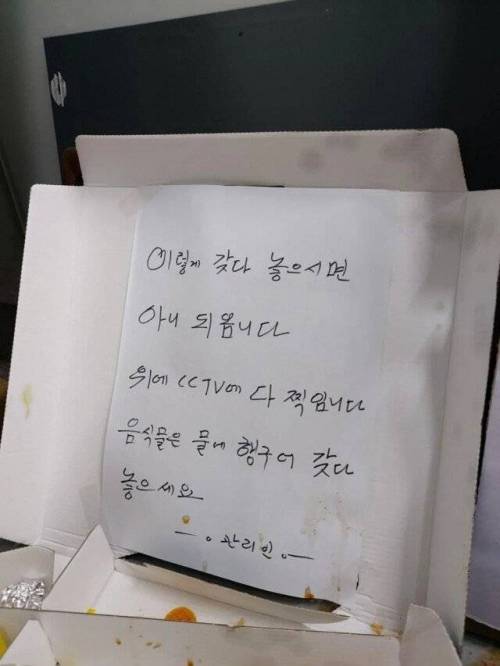 이렇게 갖다 놓으시면
아니 되옵니다
위에 CCTV에 다 찍입니다
음식물은 물에 행구어 갖다
놓으세요
- 。관리인 。-